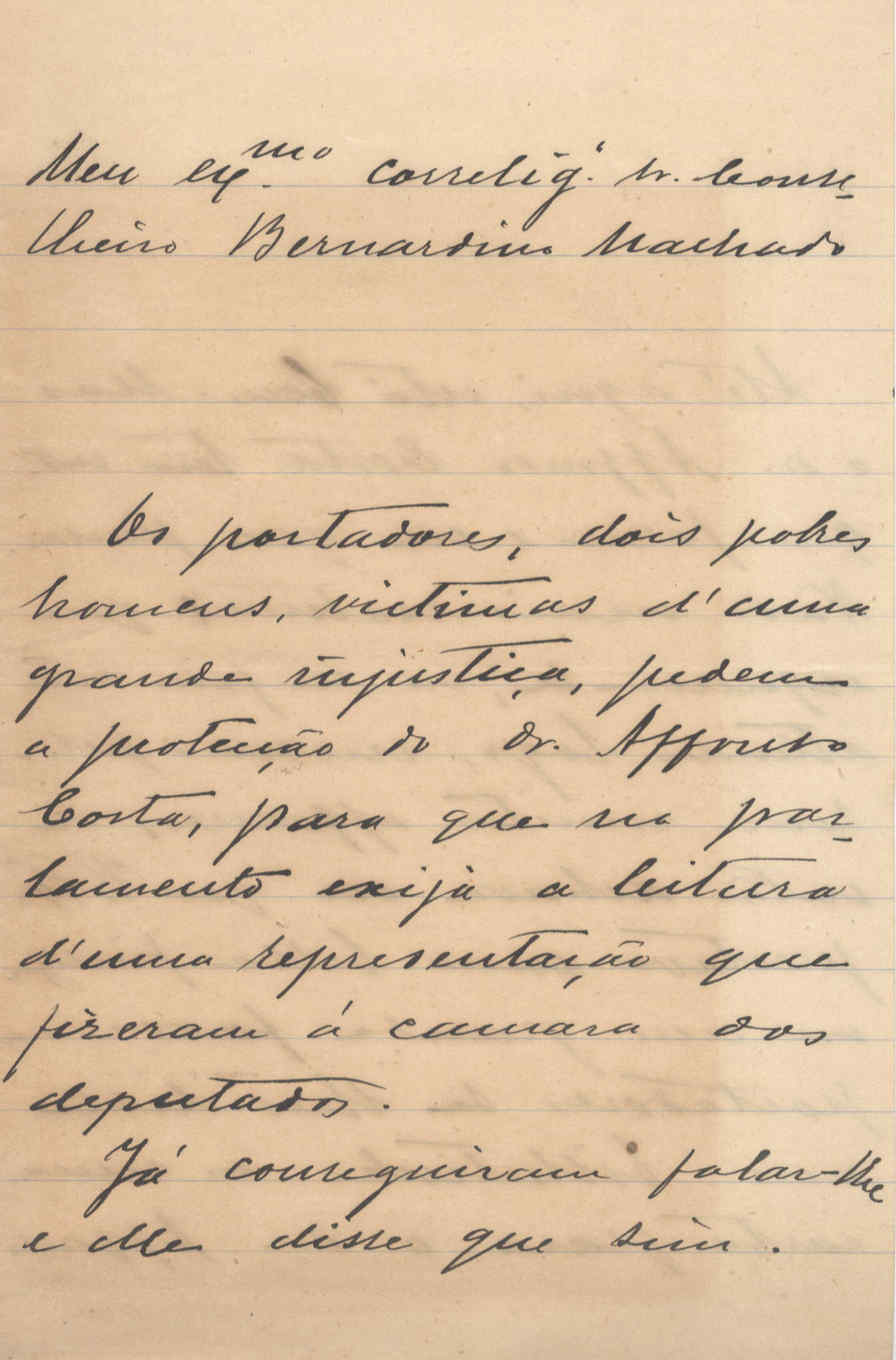 Meu ex.mo correlig.o sr. Conse-
lheiro Bernardino Machado
Os portadores, dois pobres
homens, victimas d'uma
grande injustiça, pedem
a proteição do dr. Affonso
Costa, para que no par-
lamento exija a leitura
d'uma representação que
fizeram á camara dos
deputados.
Já conseguiram falar-lhe
e elle disse que sim.